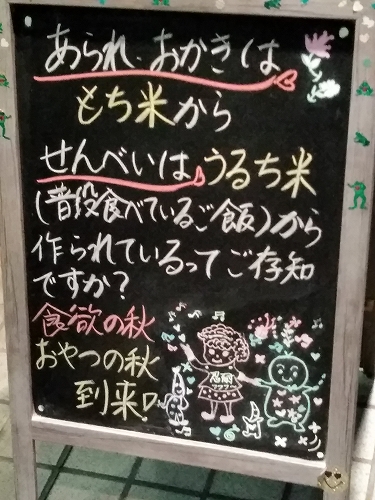 あられ、おかきは
もち米から
せんべいはうるち米
(普段食べているご飯)から
作られているってご存知
ですか?
食欲の秋
おやつの秋
到来!